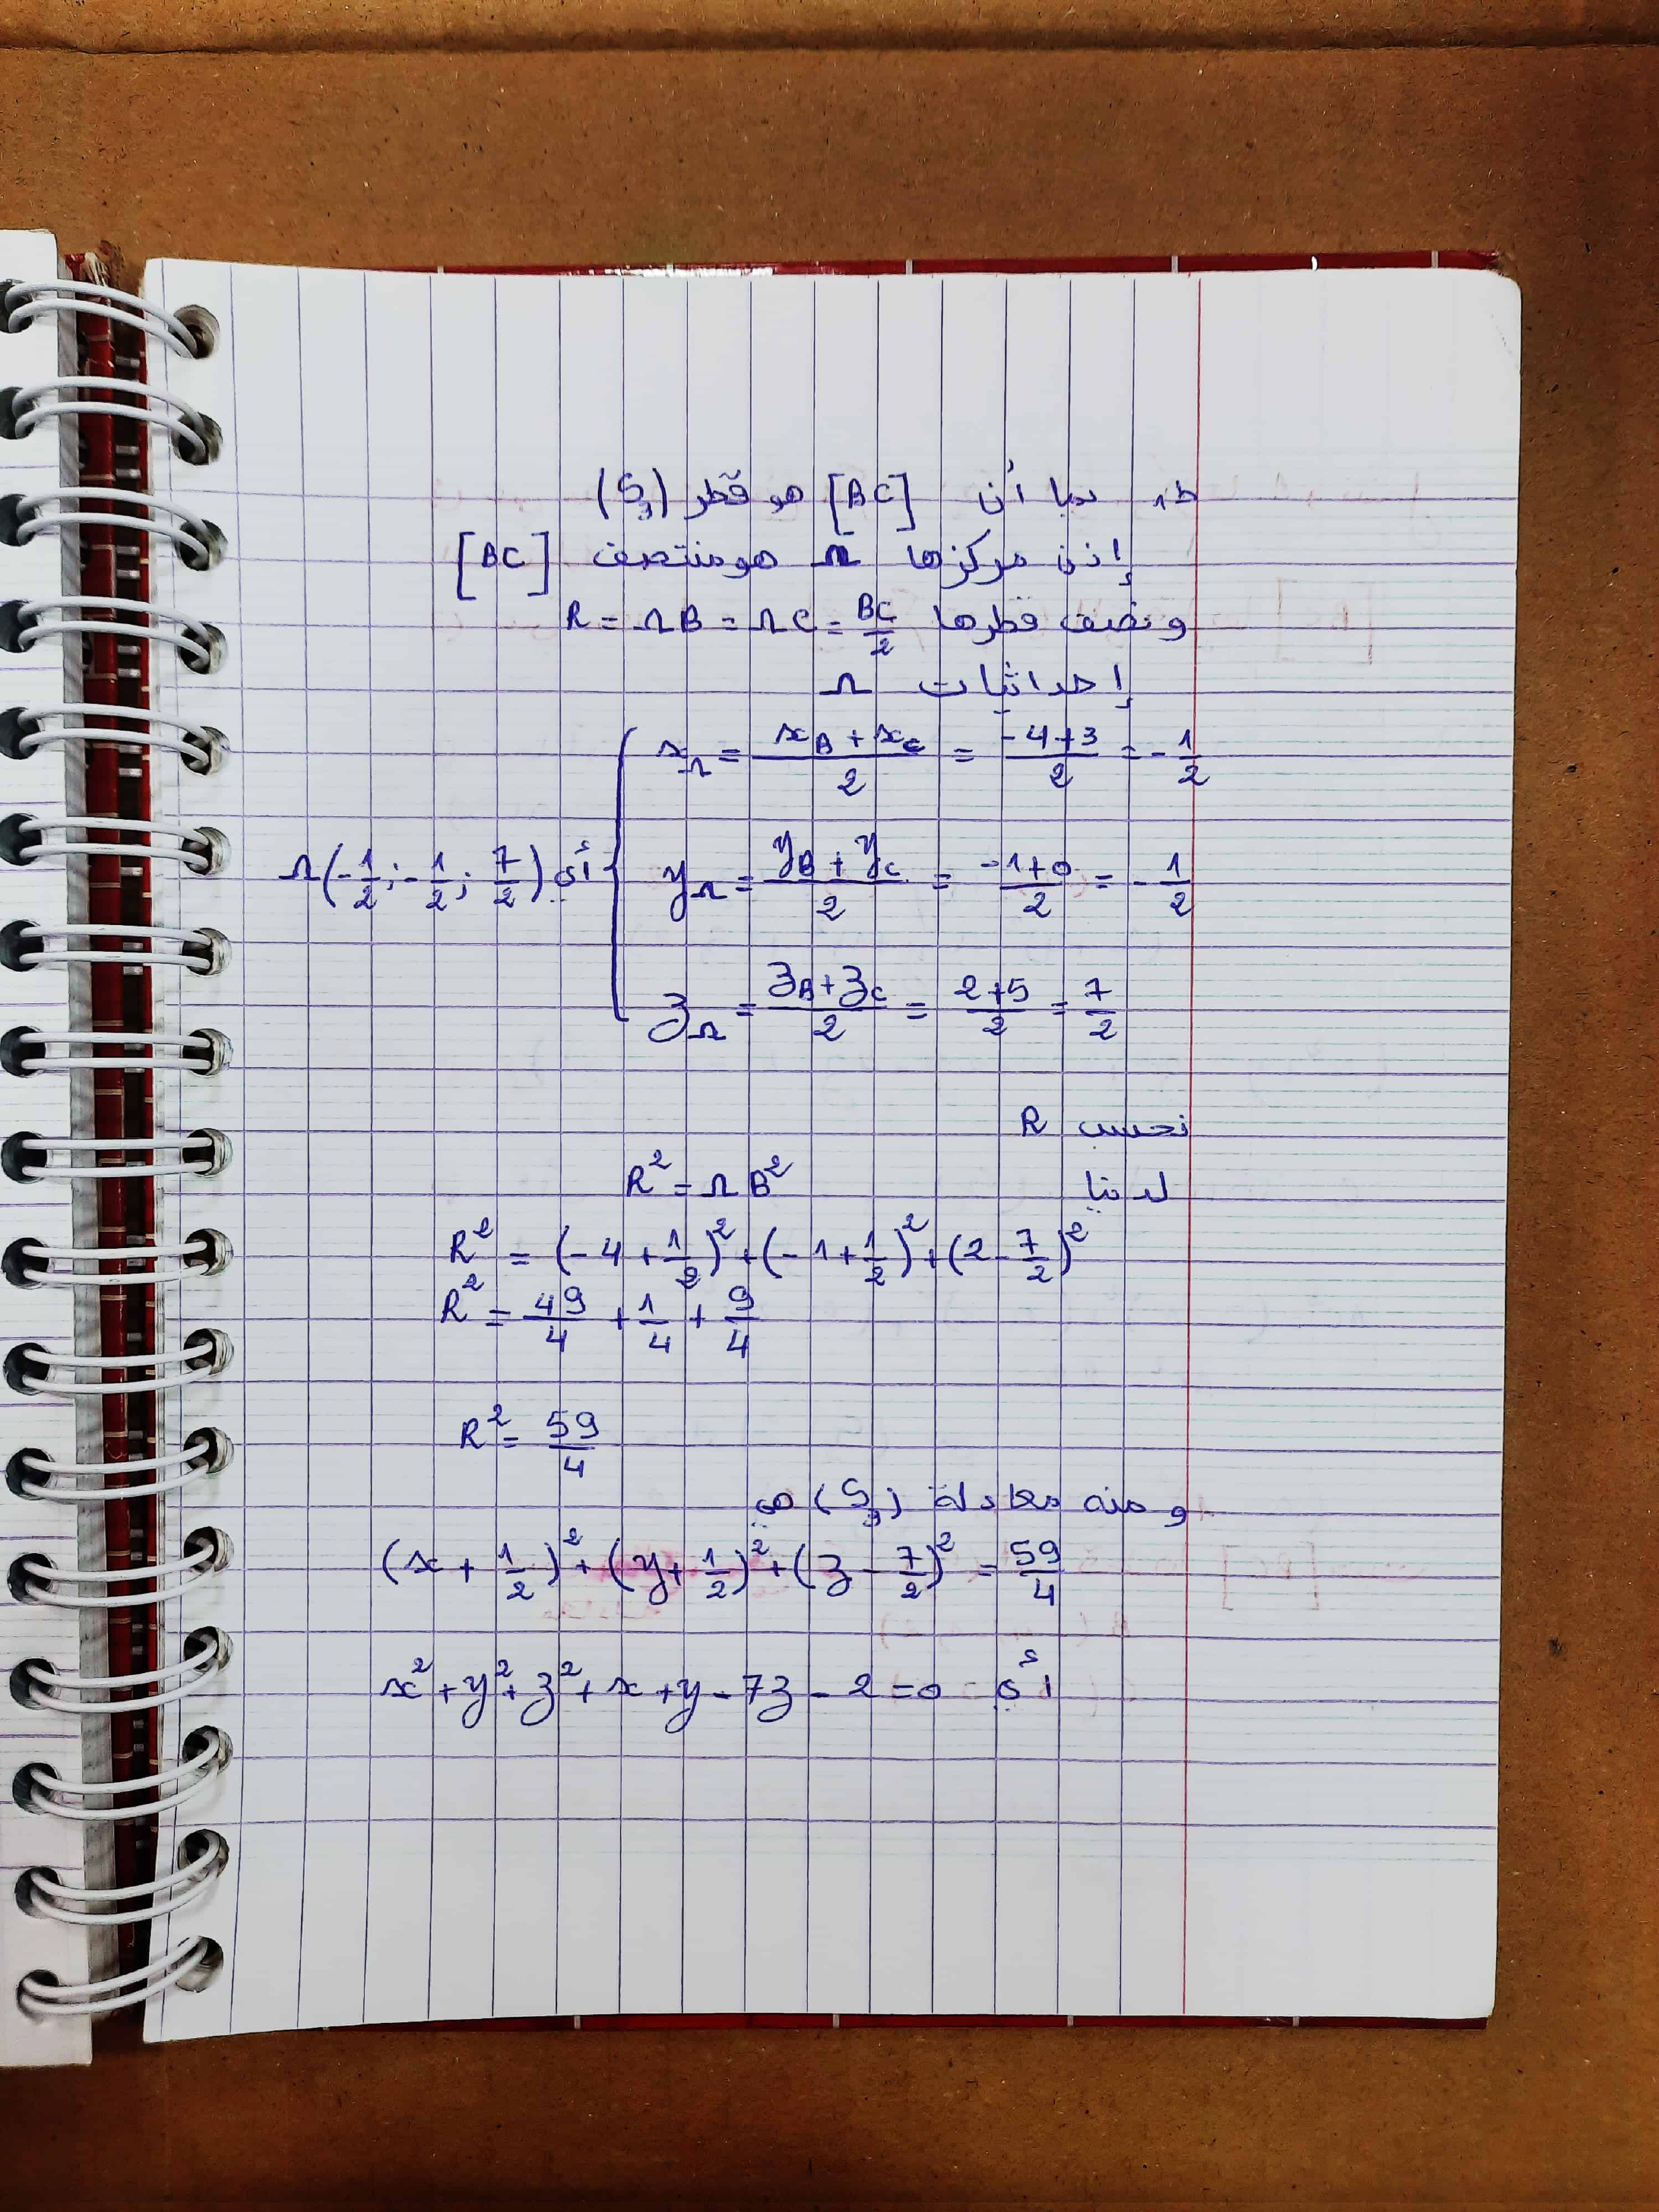 ط1 بما أن [BC] هو قطر (S₃)
إذن مركزها Ω هو منتصف [BC]
و نصف قطرها R = ΩB = ΩC = BC/2
إحداثيات Ω
x_Ω = (x_B + x_C)/2 = (-4+3)/2 = -1/2
y_Ω = (y_B + y_C)/2 = (-1+0)/2 = -1/2
أي Ω(-1/2 ; -1/2 ; 7/2)
z_Ω = (z_B + z_C)/2 = (2+5)/2 = 7/2
نحسب R
لدينا R² = ΩB²
R² = (-4 + 1/2)² + (-1 + 1/2)² + (2 - 7/2)²
R² = 49/4 + 1/4 + 9/4
R² = 59/4
و منه معادلة (S₃) هي
(x + 1/2)² + (y + 1/2)² + (z - 7/2)² = 59/4
أي x² + y² + z² + x + y - 7z - 2 = 0